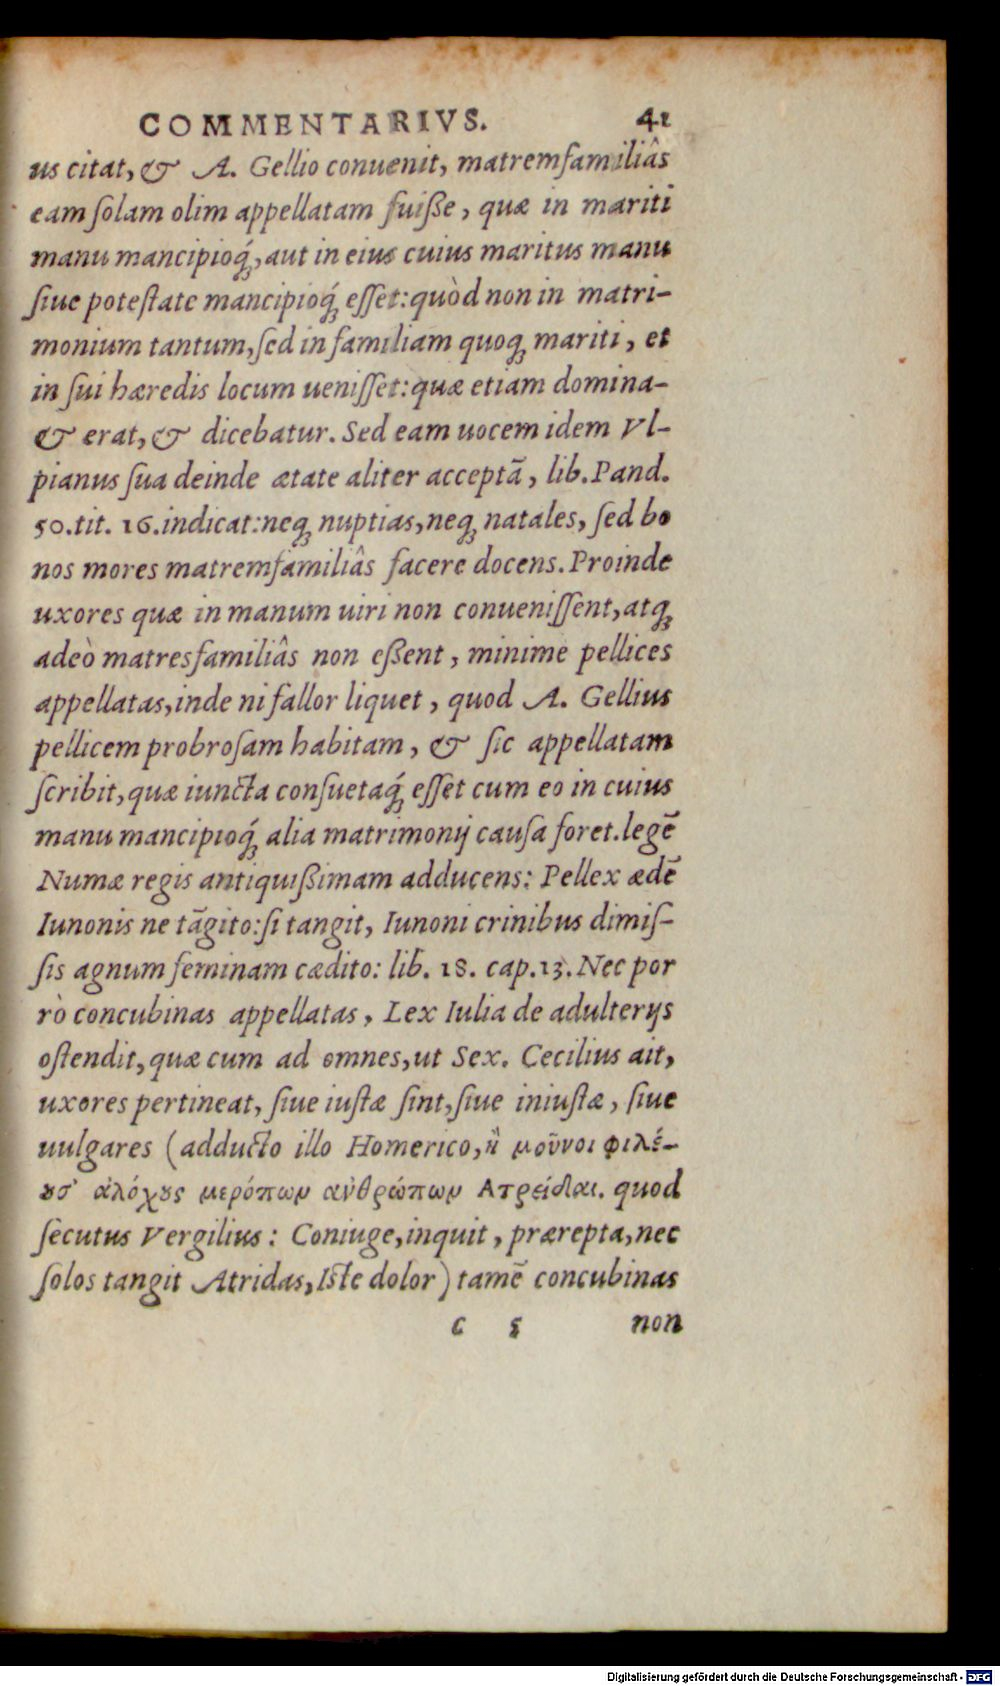 COMMENTARIVS. 41
us citat, & A. Gellio conuenit, matremfamiliâs
eam ſolam olim appellatam fuiße, quæ in mariti
manu mancipioq́;, aut in eius cuius maritus manu
ſiue poteſtate mancipioq́; eſſet: quòd non in matri-
monium tantum, ſed in familiam quoq; mariti, et
in ſui hæredis locum ueniſſet: quæ etiam domina-
& erat, & dicebatur. Sed eam uocem idem Vl-
pianus ſua deinde ætate aliter acceptā, lib. Pand.
50. tit. 16. indicat: neq; nuptias, neq; natales, ſed bo
nos mores matremfamiliâs facere docens. Proinde
uxores quæ in manum uiri non conueniſſent, atq;
adeò matresfamiliâs non eßent, minime pellices
appellatas, inde ni fallor liquet, quod A. Gellius
pellicem probroſam habitam, & ſic appellatam
ſcribit, quæ iuncta conſuetaq́; eſſet cum eo in cuius
manu mancipioq́; alia matrimonij cauſa foret. legē
Numæ regis antiquißimam adducens: Pellex ædē
Iunonis ne tāgito: ſi tangit, Iunoni crinibus dimiſ-
ſis agnum feminam cædito: lib. 18. cap. 13. Nec por
rò concubinas appellatas, Lex Iulia de adulterijs
oſtendit, quæ cum ad omnes, ut Sex. Cecilius ait,
uxores pertineat, ſiue iuſtæ ſint, ſiue iniuſtæ, ſiue
uulgares (adducto illo Homerico, ἢ μοῦνοι φιλέ-
ουσ᾽ ἀλόχους μερόπων ἀνθρώπων Ατρείδαι. quod
ſecutus Vergilius: Coniuge, inquit, prærepta, nec
ſolos tangit Atridas, Iſte dolor) tamē concubinas
c 5 non
Digitalisierung gefördert durch die Deutsche Forschungsgemeinschaft - DFG